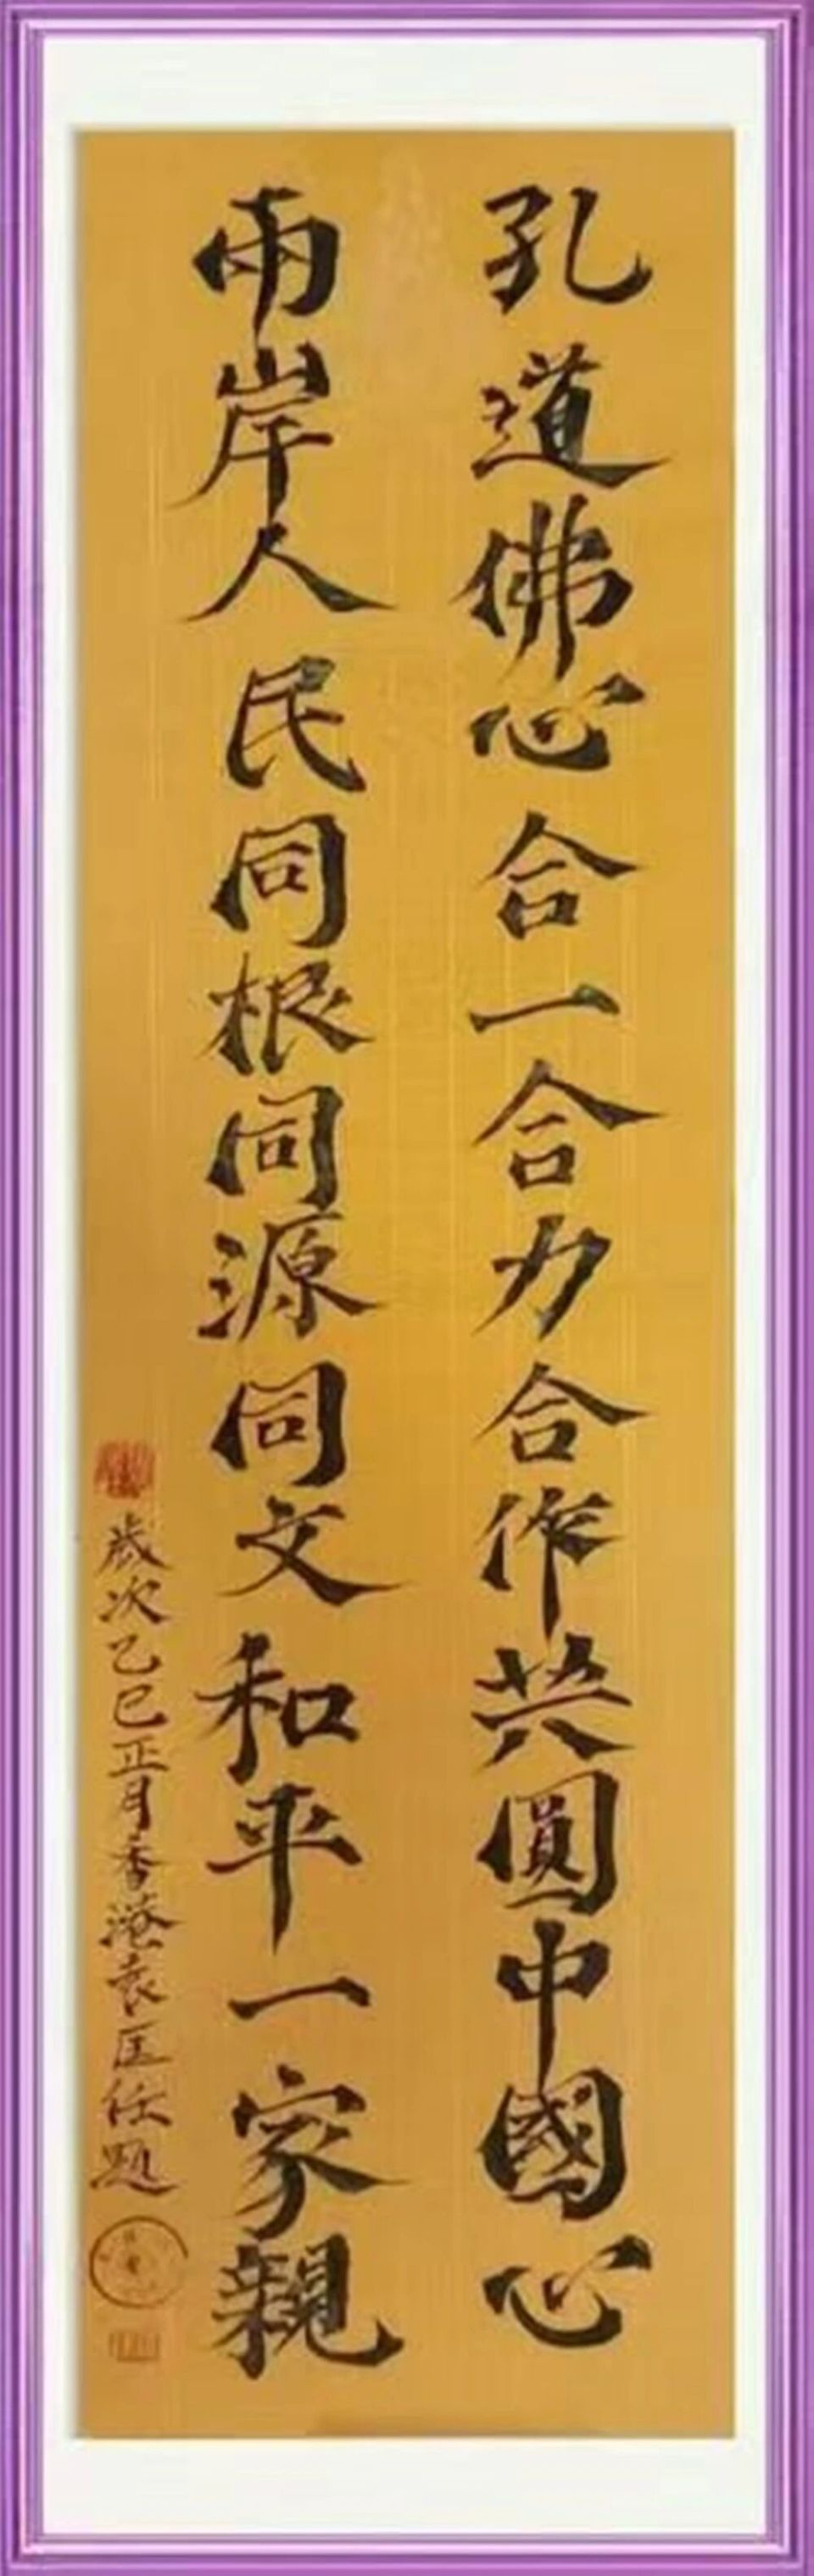 孔道佛心合一合力合作共圓中國心
兩岸人民同根同源同文和平一家親
歲次乙巳正月香港袁匡任題